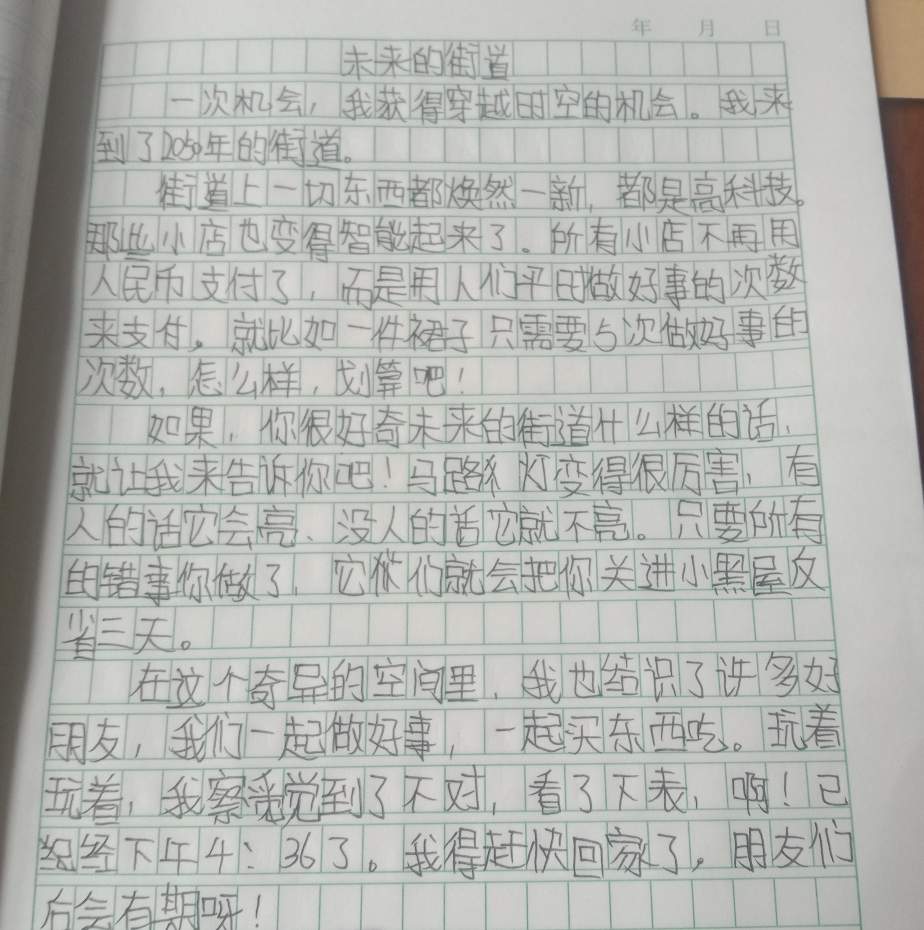 年 月 日
未来的街道
一次机会，我获得穿越时空的机会。我来
到了2050年的街道。
街道上一切东西都焕然一新，都是高科技。
那些小店也变得智能起来了。所有小店不再用
人民币支付了，而是用人们平日做好事的次数
来支付。就比如一件裙子只需要5次做好事的
次数，怎么样，划算吧！
如果，你很好奇未来的街道什么样的话，
就让我来告诉你吧！马路灯变得很厉害，有
人的话它会亮、没人的话它就不亮。只要所有
的错事你做了，它们就会把你关进小黑屋反
省三天。
在这个奇异的空间里，我也结识了许多好
朋友，我们一起做好事，一起买东西吃。玩着
玩着，我察觉到了不对，看了下表，啊！已
经下午4：36了。我得赶快回家了，朋友们
后会有期呀！